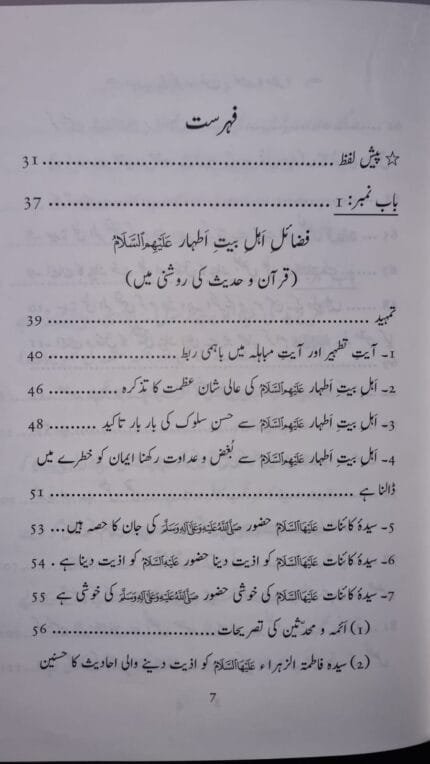 فہرست
☆ پیش لفظ ........................................ 31
باب نمبر: 1 ........................................ 37
فضائلِ اَہلِ بیتِ اَطہار عَلَیْهِمُ السَّلَامُ
(قرآن و حدیث کی روشنی میں)
تمہید ........................................ 39
1۔ آیتِ تطہیر اور آیتِ مباہلہ میں باہمی ربط .................. 40
2۔ اَہلِ بیتِ اَطہار عَلَیْهِمُ السَّلَامُ کی عالی شان عظمت کا تذکرہ ............ 46
3۔ اَہلِ بیتِ اَطہار عَلَیْهِمُ السَّلَامُ سے حسنِ سلوک کی بار بار تاکید ......... 48
4۔ اَہلِ بیتِ اَطہار عَلَیْهِمُ السَّلَامُ سے بُغض و عداوت رکھنا ایمان کو خطرے میں
ڈالنا ہے ........................................ 51
5۔ سیدۂ کائنات عَلَیْهَا السَّلَامُ حضور صَلَّی اللهُ عَلَیْهِ وَعَلٰی آلِهٖ وَسَلَّمَ کی جان کا حصہ ہیں... 53
6۔ سیدۂ کائنات عَلَیْهَا السَّلَامُ کو اذیت دینا حضور عَلَیْهِ السَّلَامُ کو اذیت دینا ہے . 54
7۔ سیدۂ کائنات عَلَیْهَا السَّلَامُ کی خوشی حضور صَلَّی اللهُ عَلَیْهِ وَعَلٰی آلِهٖ وَسَلَّمَ کی خوشی ہے 55
(1) اَئمہ و محدّثین کی تصریحات ........................ 56
(2) سیدہ فاطمۃ الزہراء عَلَیْهَا السَّلَامُ کو اذیت دینے والی احادیث کا حسنین
7